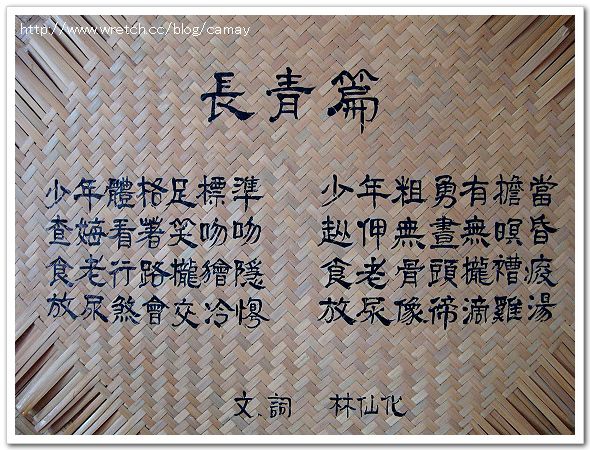 http://www.wretch.cc/blog/camay
長青篇
少年體格足標準
查娒看著笑吻吻
食老行路攏獪隱
放尿煞會交冷
少年粗勇有擔當
無晝無暝昏
食老骨頭攏
放尿像滴雞湯
文.詞 林仙化